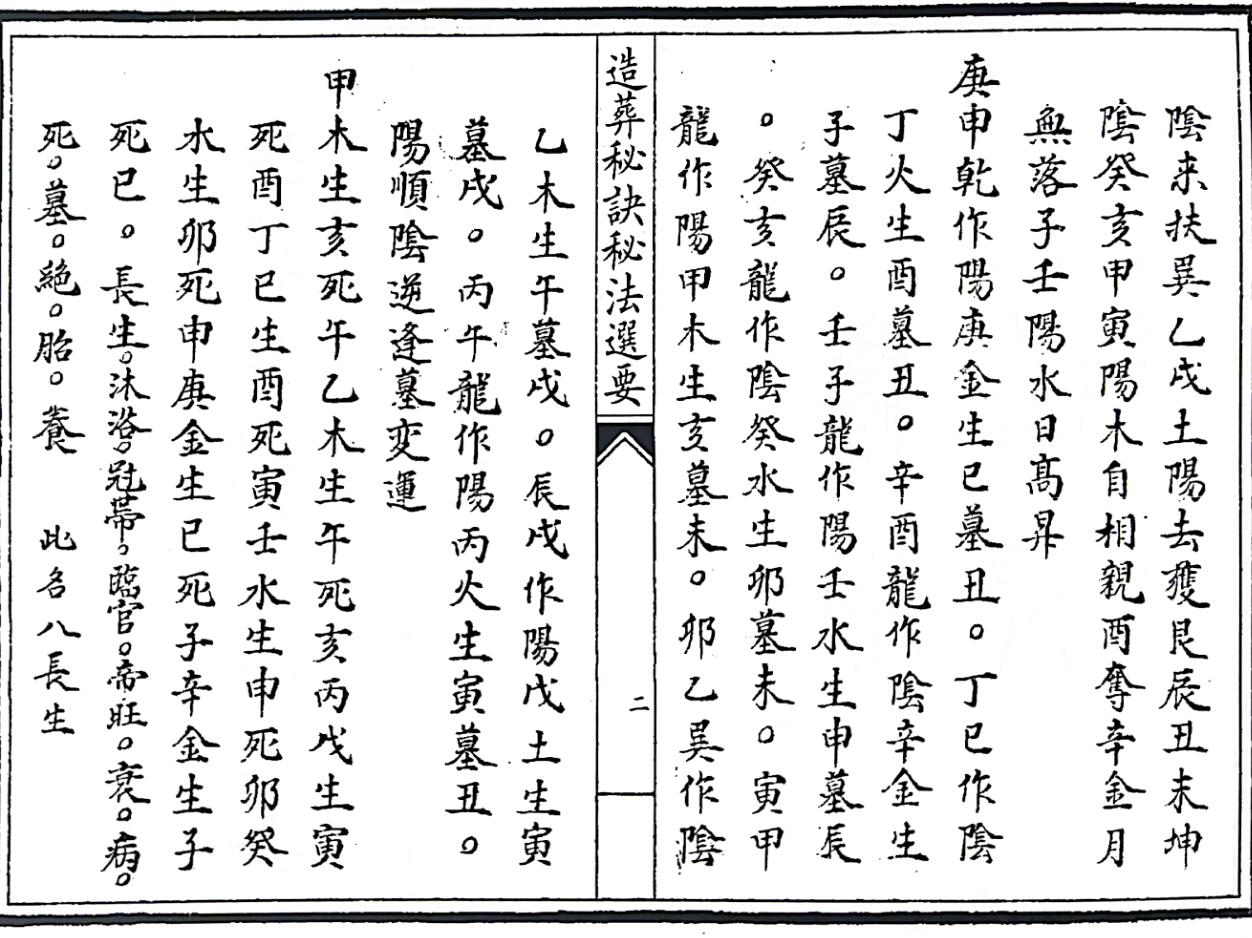 陰来扶巽乙戌土陽去獲艮辰丑未坤
陰癸亥甲寅陽木自相親酉奪辛金月
無落子壬陽水日高昇
庚申乾作陽庚金生巳墓丑。丁巳作陰
丁火生酉墓丑。辛酉龍作陰辛金生
子墓辰。壬子龍作陽壬水生申墓辰
。癸亥龍作陰癸水生卯墓未。寅甲
龍作陽甲木生亥墓未。卯乙巽作陰
造葬秘訣秘法選要
二
乙木生午墓戌。辰戌作陽戊土生寅
墓戌。丙午龍作陽丙火生寅墓丑。
陽順陰逆逢墓変運
甲木生亥死午乙木生午死亥丙戊生寅
死酉丁巳生酉死寅壬水生申死卯癸
水生卯死申庚金生巳死子辛金生子
死巳。長生。沐浴。冠帯。臨官。帝旺。衰。病。
死。墓。絶。胎。養 此名八長生